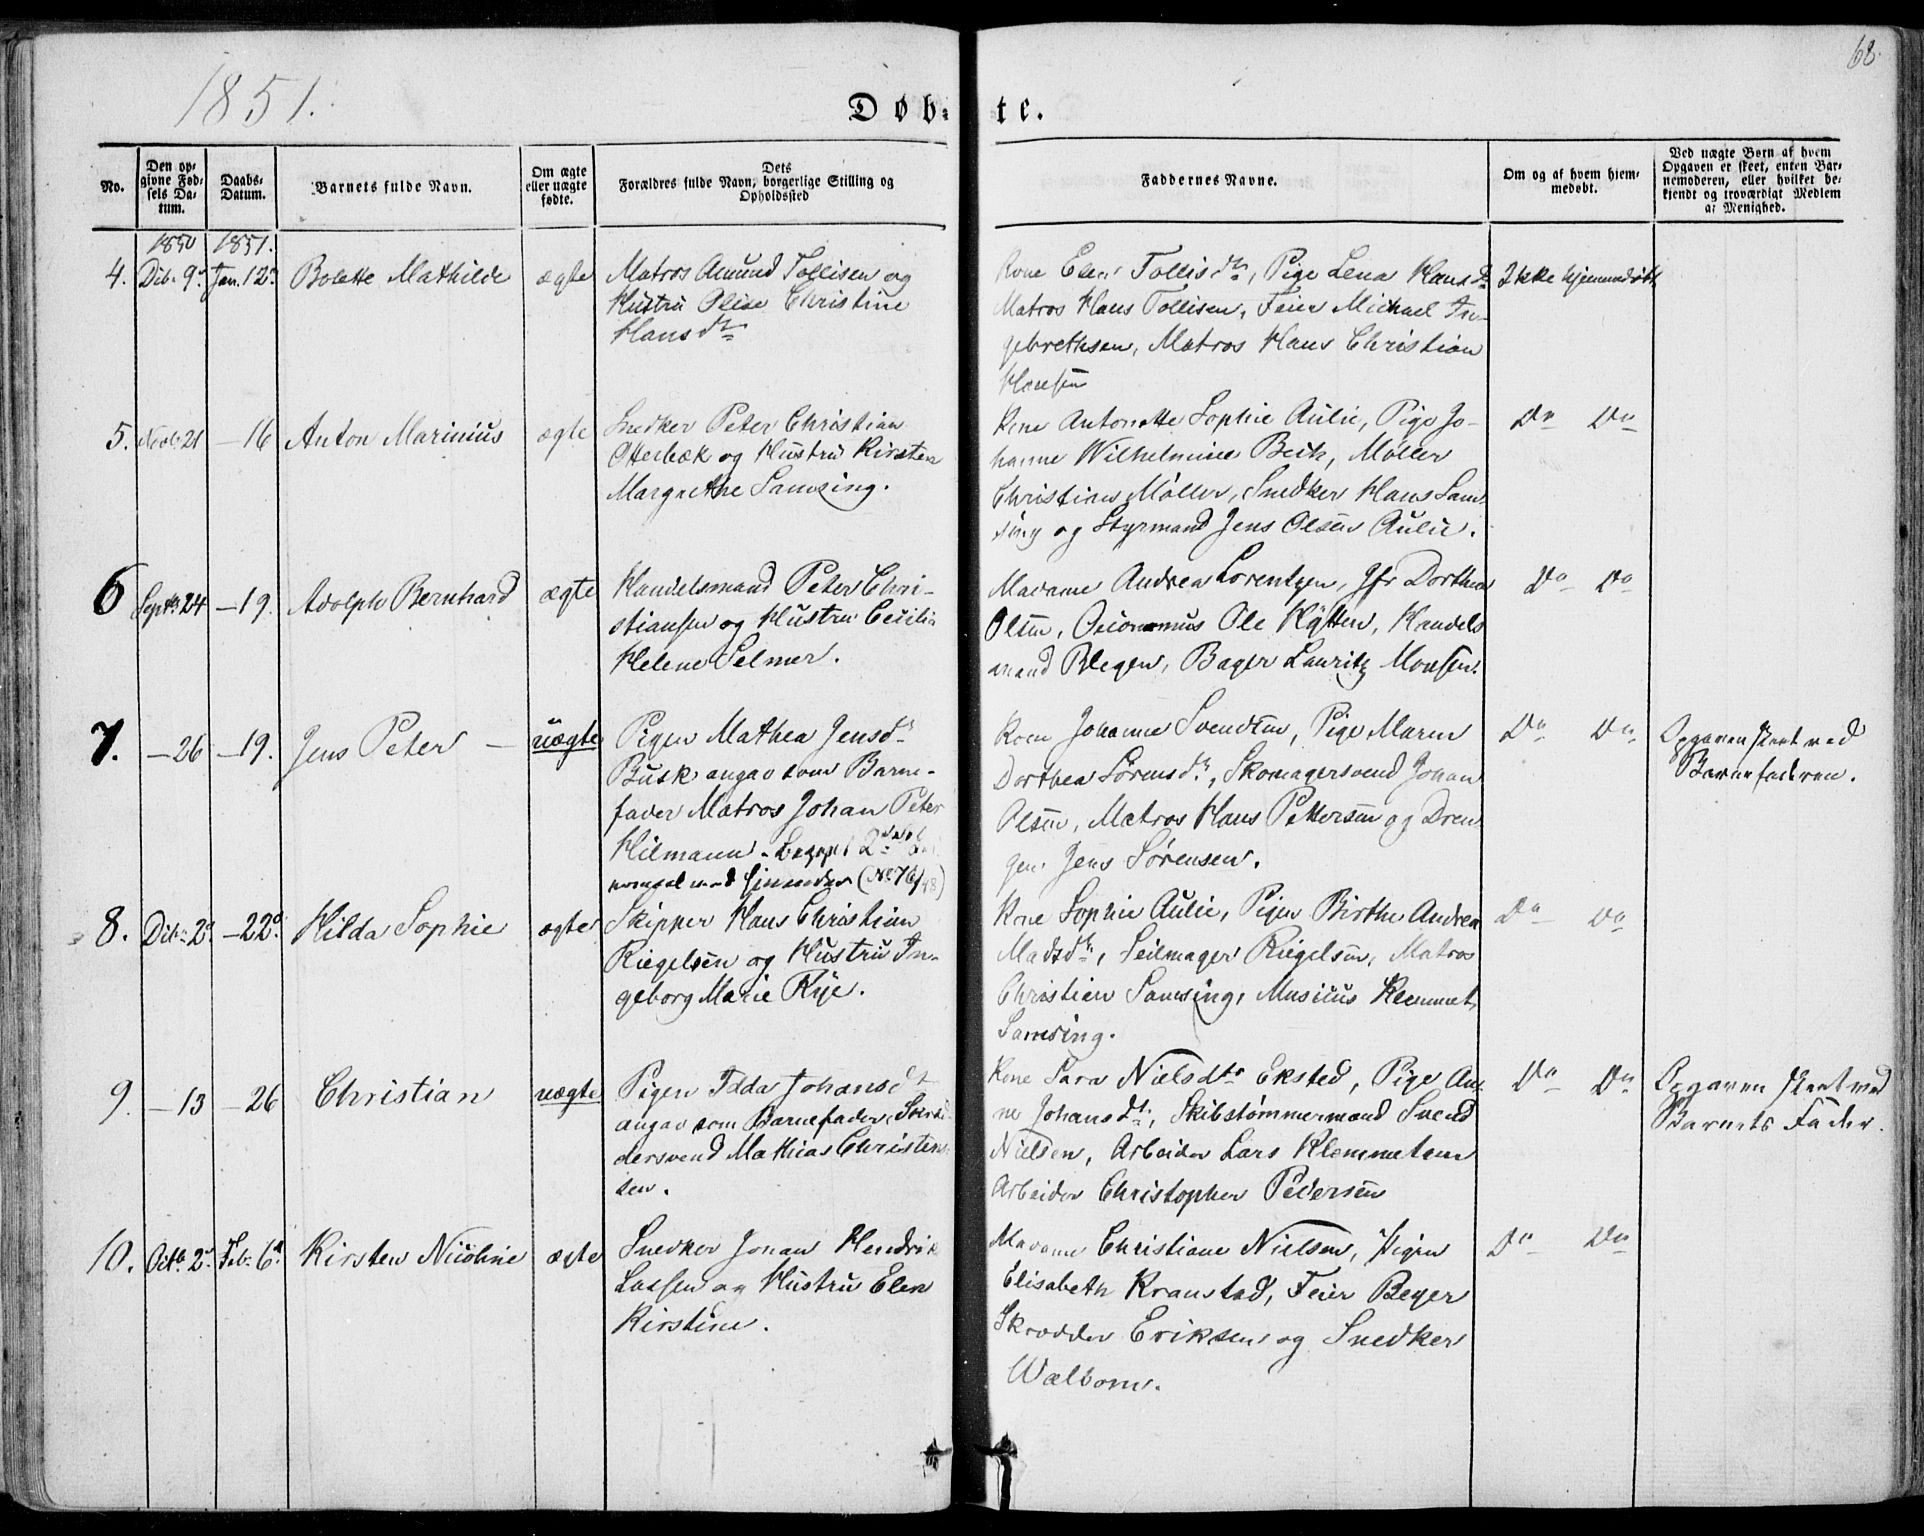 1851.
68.
Døb-
te.
No.
Den op-
givne Fød-
sels Da-
tum.
Daabs-
Datum.
Barnets fulde Navn.
Om ægte
eller uægte
fødte.
Dets
Forældres fulde Navn, borgerlige Stilling og
Opholdssted
Faddernes Navne.
Om og af hvem hjem-
medøbt.
Ved uægte Børn af hvem
Opgaven er skeet, enten Bar-
nemoderen, eller hvilket be-
kjendt og troværdigt Medlem
af Menighed.
1850
1851.
4. Dcb. 9d Jan. 12d Bolette Mathilde ægte
Matros Amund Tollisen og
Hustru Olise Christine
Hansdtr
Kone Elen Tollisdtr, Pige Lena Hansdtr
Matros Hans Tollisen, Feier Michael In-
gebrethsen, Matros Hans Christian
Hansen
Ikke hjemmedøbt
5. Novb. 21 -16 Anton Marinius ægte
Snedker Peter Christian
Otterbæk og Hustru Kirsten
Margrethe Samsing.
Kone Antonette Sophie Aulie, Pige Jo-
hanne Wilhelmine Beck, Møller
Christian Møller, Snedker Hans Sam-
sing og Styrmand Jens Olsen Aulie.
Do Do
6 Septbr 24 -19. Adolph Bernhard ægte
Handelsmand Peter Chri-
stiansen og Hustru Cecilie
Helene Selmer.
Madame Andrea Lorentzen, Jfr Dorthea
Olsen, Oeconomus Ole Hytten, Handels
mand Blegen, Bager Lauritz Monsen.
Do Do
7. -26 -19. Jens Peter - uægte
Pigen Mathea Jensdr
Busk angav som Barne-
fader Matros Johan Peter
Hilmann. Begges 2det
med hinanden (No 76/48)
Kone Johanne Svendsen, Pige Maren
Dorthea Sørensdtr, Skomagersvend Johan
Olsen, Matros Hans Pettersen og Dren-
gen Jens Sørensen.
Do Do
Opgaven skeet ved
Barnefaderen.
8. Dcbr 2d -22d Hilda Sophie ægte
Skipper Hans Christian
Riegelsen og Hustru In-
geborg Marie Rye.
Kone Sophie Aulie, Pigen Birthe Andrea
Madsdtr, Seilmager Riegelsen, Matros
Christian Samsing, Musicus Klemmet
Samsing.
Do Do
9. -13 -26 Christian uægte
Pigen Idda Johansdtr
angav som Barnefader
dersvend Mathias Christen-
sen.
Kone Sara Nielsdtr Eksted, Pige An-
ne Johansdtr, Skibstømmermand Svend
Nielsen, Arbeider Lars Klemmetsen
Arbeider Christopher Pedersen
Do Do
Opgaven skeet ved
Barnets Fader.
10. Octb. 2d Feb. 6d Kirsten Nicoline ægte
Snedker Johan Hendrik
Lassen og Hustru Elen
Kirstine.
Madame Christiane Nielsen, Pigen
Elisabeth Kranstad, Feier Beyer
Skrædder Eriksen og Snedker
Wælbom.
Do Do